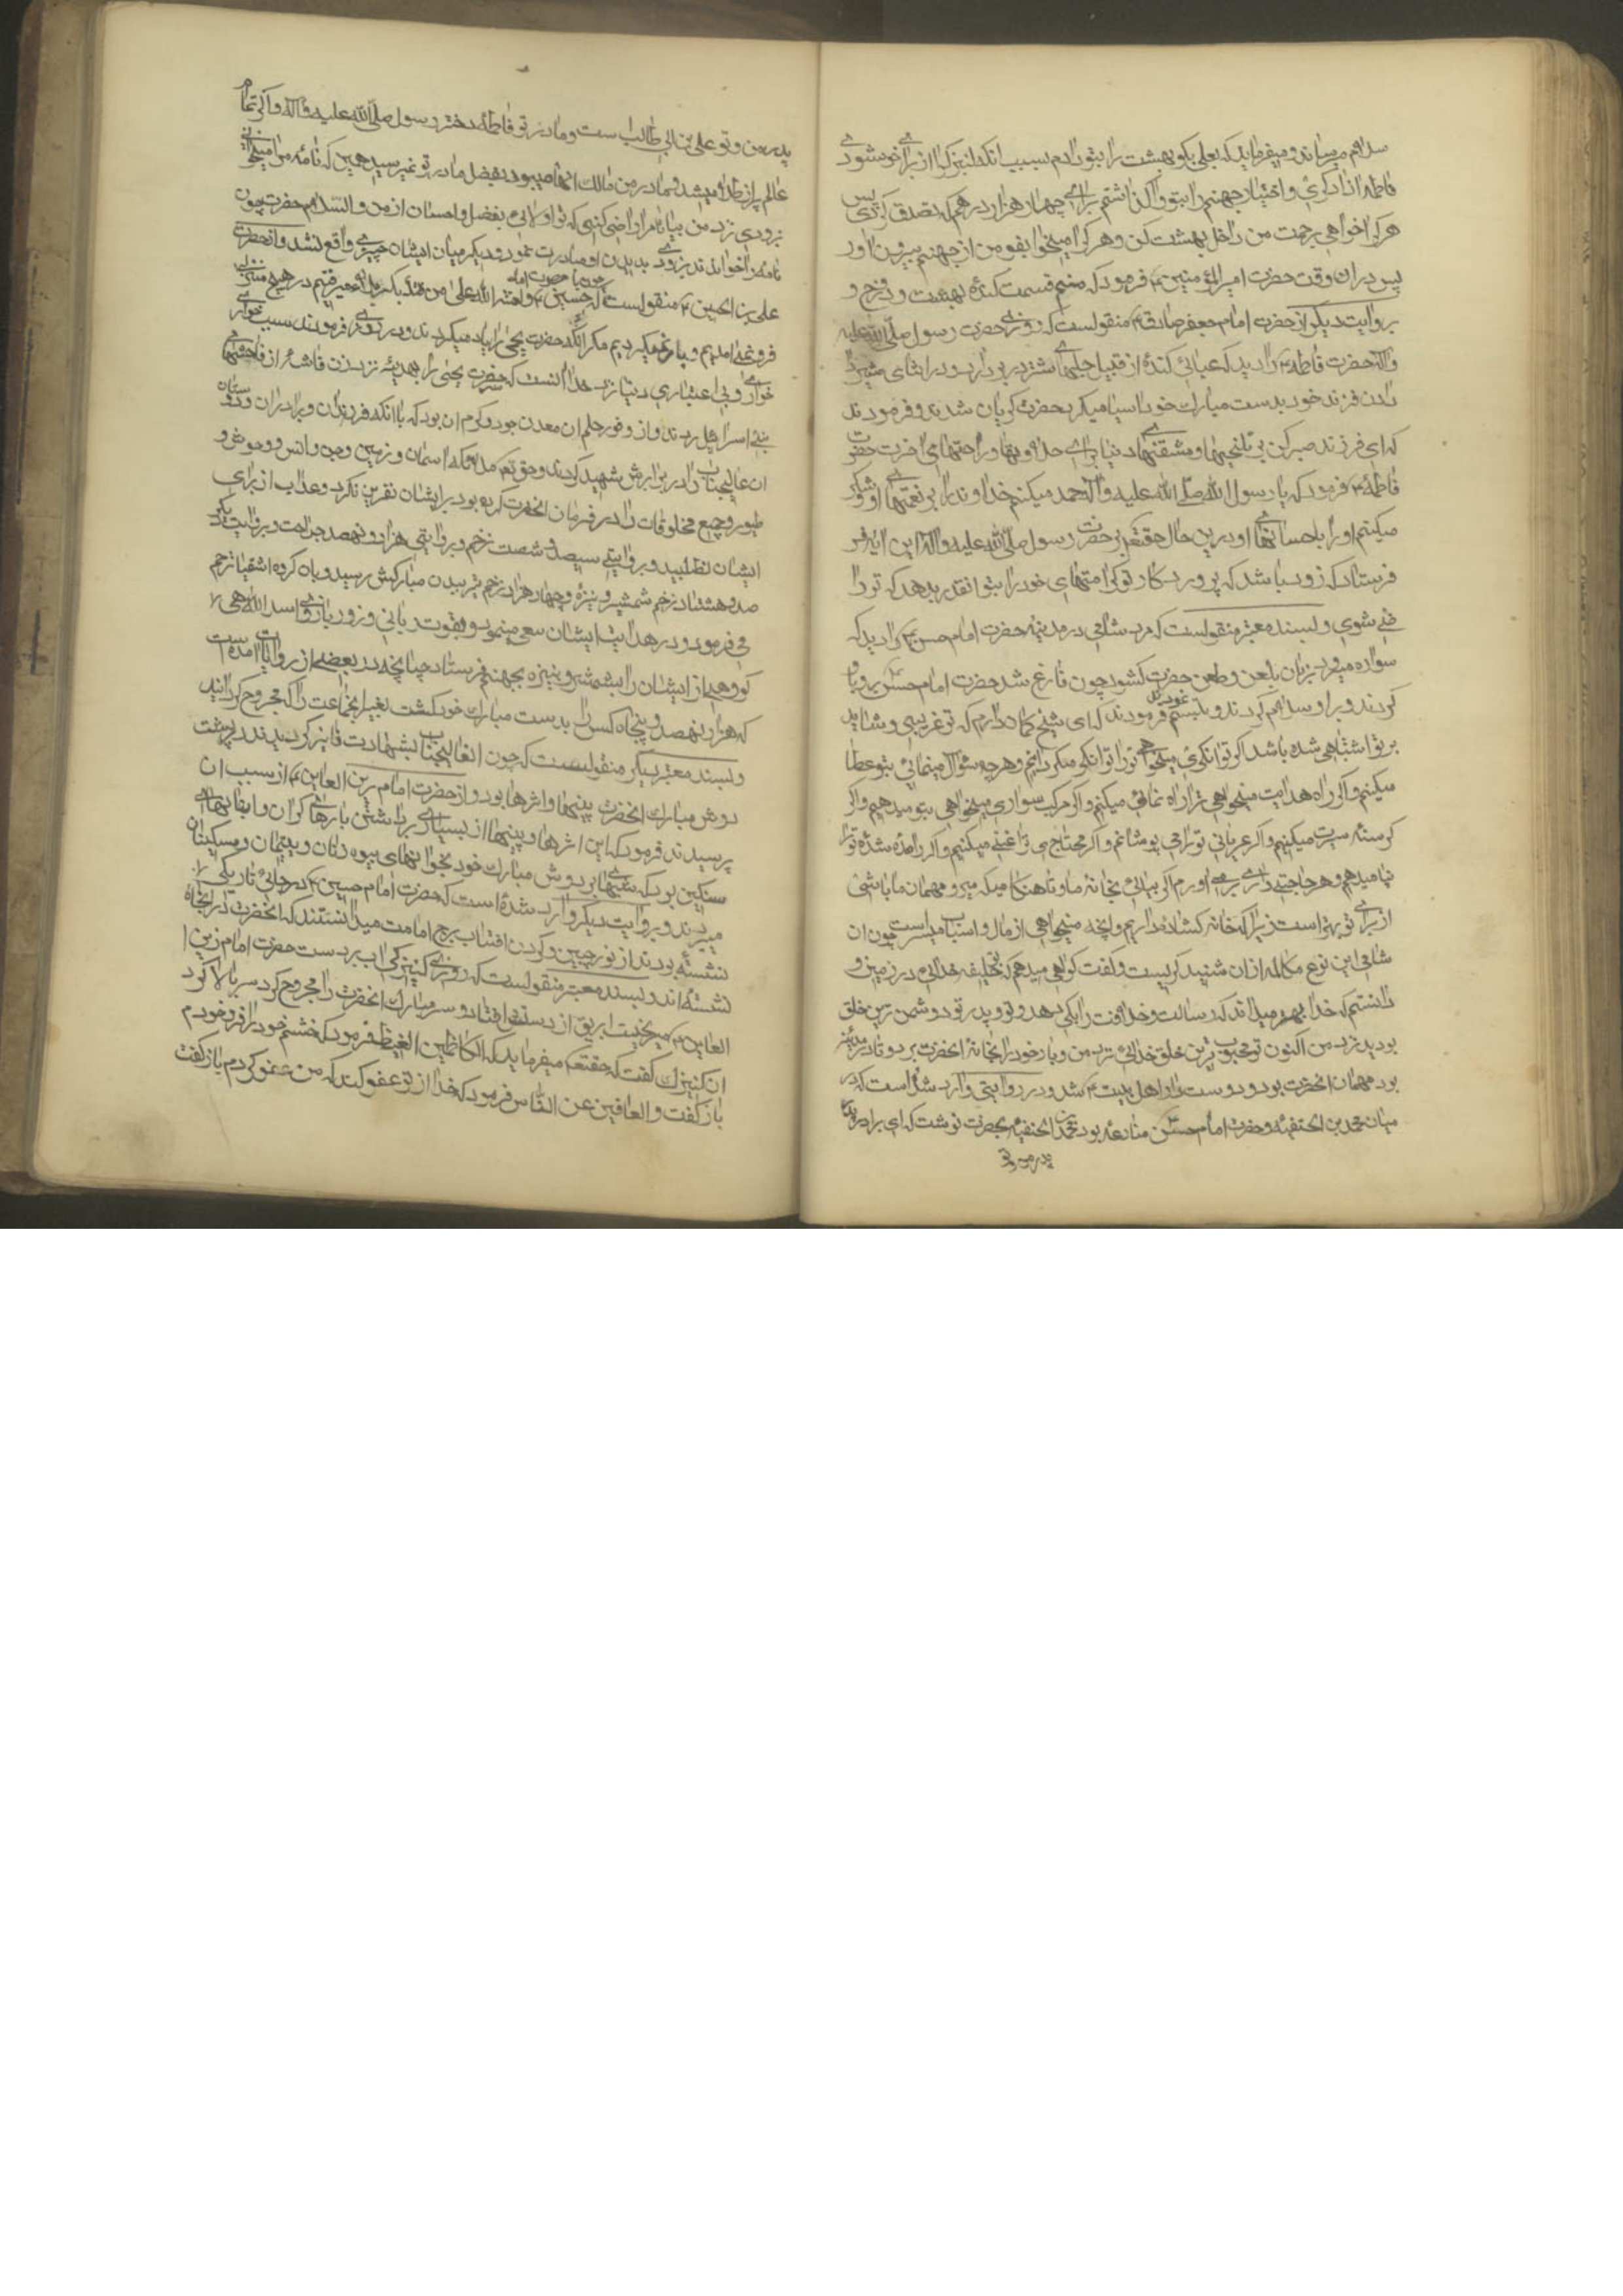 سلام میرساند و میفرماید که بعلی بکو بهشت را بتو دادم بسبب انکه کنیزک را از برای خوشنودی
فاطمه ازاد کردی و اختیار جهنم را بتو واکذاشتم برای چهار هزار درهم که تصدق کردی پس
هر که را خواهی برحمت من داخل بهشت کن و هر که را میخواهی بعفو من از جهنم بیرون اور
پس در ان وقت حضرت امیرالمؤمنین ع فرمود که منم قسمت کننده بهشت و دوزخ و
بروایت دیکر از حضرت امام جعفر صادق ع منقولست که روزی حضرت رسول صلّی الله علیه
واله حضرت فاطمه ع را دید که عبائی کنده از قبیل جلهای شتر در بر دارد و در اثنای شیر
دادن فرزند خود بدست مبارک خود اسیا میکرد حضرت کریان شدند و فرمودند
که ای فرزند صبر کن بر تلخیها و مشقتهای دنیا برای حلاوتها و راحتهای اخرت حضرت
فاطمه ع فرمود که یا رسول الله صلّی الله علیه واله حمد میکنم خداوند را بر نعمتهای او و شکر
میکنم او را باحسانهای او در این حال حقتعم بر حضرت رسول صلّی الله علیه واله این ایه
فرستاد که زود باشد که پروردکار تو کرامتهای خود را بتو انقدر بدهد که تو را
ضی شوی و بسند معتبر منقولست که مرد شامی در مدینه حضرت امام حسن ع را دید که
سواره میرود زبان بلعن و طعن حضرت کشود چون فارغ شد حضرت امام حسن ع رو باو
کردند و بر او سلام کردند و تبسم نموده فرمودند که ای شیخ کمان دارم که تو غریبی و شاید
بر تو اشتباهی شده باشد اکر توانکری میخواهی تو را توانکر میکردانم و هرچه سؤال مینمائی بتو عطا
میکنم و اکر راه هدایت میخواهی ترا راه نمائی میکنم و اکر مرکب سواری میخواهی بتو میدهیم و اکر
کرسنهٔ سیرت میکنیم و اکر عریانی تو را می پوشانم و اکر محتاجی ترا غنی میکنیم و اکر رانده شدهٔ تو را
پناه میدهم و هر حاجتی داری برمی اورم اکر بیائی بخانهٔ ما و تا هنکامیکه میرو مهمان ما باشی
از برای تو بهتر است زیرا که خانه کشاده داریم و انچه میخواهی از مال و اسباب میسر است چون ان
شامی این نوع مکالمه از ان شنید کریست و کفت کواهی میدهم که تو خلیفه خدائی در زمین و
دانستم که خدا بهتر میداند که رسالت و خلافت را بکی بدهد و تو و پدر تو دشمن ترین خلق
بودید نزد من اکنون تو محبوب ترین خلق خدائی نزد من و بار خود را بخانه انحضرت برد و تا در مدینه
بود مهمان انحضرت بود و دوست دار اهل بیت ع شد و در روایتی وارد شده است که در
میان محمد بن الحنفیه و حضرت امام حسن منازعه بود محمد بن الحنفیه بحضرت نوشت که ای برادر
پدر من و تو
پدر من و تو علی بن ابی طالب است و مادر تو فاطمه دختر رسول صلّی الله علیه واله و اکر تمام
عالم پر از طلا میشد و مادر من مالک انها میبود بفضل مادر تو نمیرسید همین که نامه مرا میخوانی
بزودی نزد من بیا تا مرا راضی کنی که تو اولائی بفضل و احسان از من والسلام حضرت چون
نامه را خواندند بزودی بدیدن او مبادرت نمود و دیکر میان ایشان چیزی واقع نشد و از حضرت
علی بن الحسین ع منقولست که چون با حضرت امام حسین ع از مدینه بکربلا میرفتیم در هیچ منزلی
فرو نمی امدیم و بار نمیکردیم مکر انکه حضرت یحیی را یاد میکردند و در روزی فرمودند بسبب خواری
خواری و بی اعتباری دنیا نزد خدا انست که سر حضرت یحیی را بهدیه نزد زن فاحشهٔ از فاحشهای
بنی اسرائیل بردند و از وفور حلم ان معدن جود و کرم ان بود که با انکه فرزندان و برادران و دوستان
ان عالیجناب را در برابرش شهید کردند و حقتعم ملائکه اسمان و زمین و جن و انس و وحوش و
طیور و جمیع مخلوقات را در فرمان انحضرت کرده بود بر ایشان نفرین نکرد و عذاب از برای
ایشان نطلبید و بروایتی سیصد و شصت زخم و بروایتی هزار و نهصد جراحت و بروایت دیکر
صد و هشتاد زخم شمشیر و نیزه و چهار هزار زخم تیر ببدن مبارکش رسید و بان کروه اشقیا ترحم
می فرمود و در هدایت ایشان سعی مینمود و بقوت ربانی و زور بازوی اسد اللهی
کروهی از ایشان را بشمشیر و نیزه بجهنم فرستاد چنانچه در بعضی از روایات امده است
که هزار و نهصد و پنجاه کس را بدست مبارک خود کشت بغیر انجماعت را که مجروح کردانید
و بسند معتبر دیکر منقولست که چون انعالیجناب بشهادت فایز کردیدند در پشت
دوش مبارک انحضرت پینها و اثرها بود و از حضرت امام زین العابدین ع از سبب ان
پرسیدند فرمود که این اثرها و پینها از بسیاری برداشتن بارهای کران و انبانهای
سنکین بود که شبها بر دوش مبارک خود بخوانهای بیوه زنان و یتیمان و مسکینان
میبردند و بروایت دیکر وارد شده است که حضرت امام حسین ع که در جای تاریکی
نشسته بودند از نور جبین و کردن افتاب برج امامت میدانستند که انحضرت در انجا
نشسته اند و بسند معتبر منقولست که روزی کنیزکی اب بر دست حضرت امام زین ا
لعابدین ع میریخت ابریق از دستش افتاد و سر مبارک انحضرت را مجروح کرد سر بالا کرد
ان کنیزک کفت که حقتعم میفرماید که الکاظمین الغیظ فرمود که خشم خود را فرو خوردم
باز کفت والعافین عن النّاس فرمود که خدا از تو عفو کند که من عفو کردم باز کفت